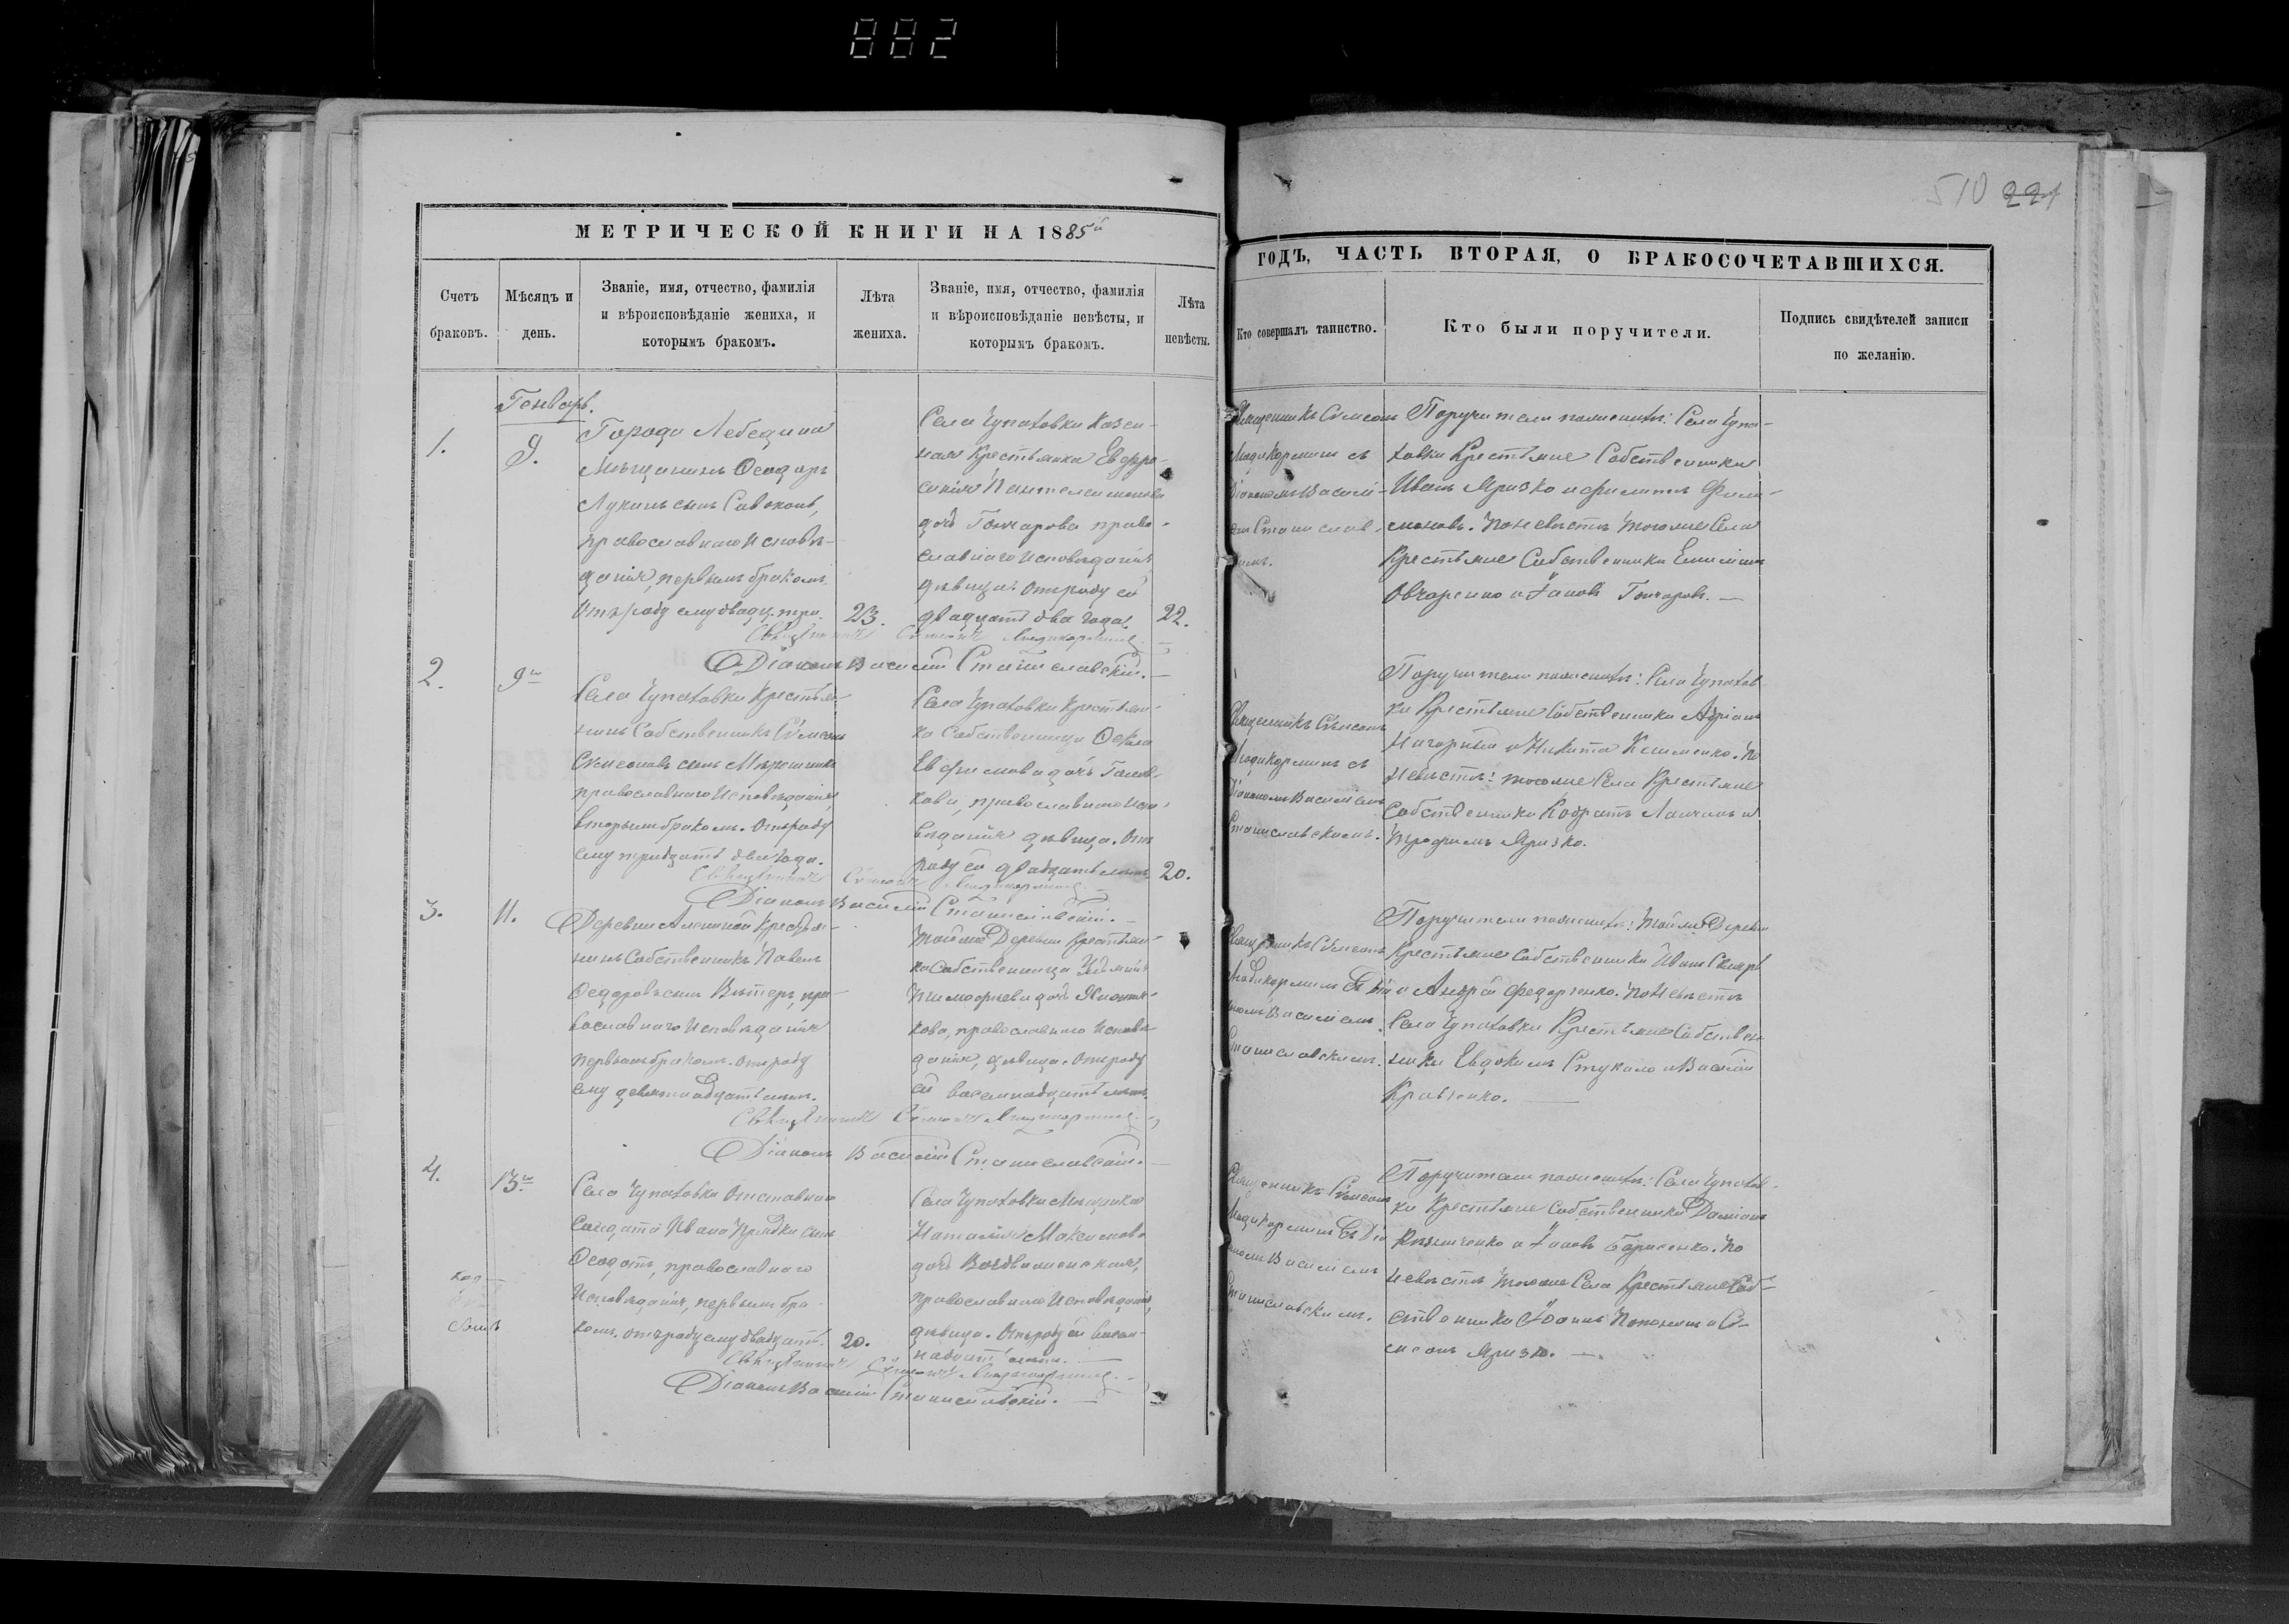 882
510 221
МЕТРИЧЕСКОЙ КНИГИ НА 1885й
ГОДЪ, ЧАСТЬ ВТОРАЯ, О БРАКОСОЧЕТАВШИХСЯ.
Счетъ браковъ.
Мѣсяцъ и день.
Званіе, имя, отчество, фамилія
и вѣроисповѣданіе жениха, и
которымъ бракомъ.
Лѣта жениха.
Званіе, имя, отчество, фамилія
и вѣроисповѣданіе невѣсты, и
которымъ бракомъ.
Лѣта невѣсты.
Кто совершалъ таинство.
Кто были поручители.
Подпись свидѣтелей записи
по желанію.
Генварь.
1.
9.
Города Лебедина
Мѣщанинъ Ѳеодоръ
Лукинъ сынъ
православнаго Исповѣ-
данія, первымъ бракомъ
Отъ роду ему двадц. три.
23.
Села Чупаховки Казен-
ная Крестьянка Евфро-
синія Пантелеимонова
дочь Гончарова право-
славнаго Исповѣданія
дѣвица. Отъ роду ей
двадцать два года.
22.
Священникъ Сѵмеонъ
съ
Діакономъ Василі-
Поручители по женихѣ: Села Чупа-
ховки Крестьяне Собственники
Иванъ Яризко и Филиппъ Фили-
моновъ. По невѣстѣ того же Села
Крестьяне Собственники
Овчаренко и Іаковъ Гончаровъ.
Священникъ Сѵмеонъ
Діаконъ Василій Станиславскій.
2.
9го
Села Чупаховки Крестья-
нинъ Собственникъ Сѵмеонъ
Сѵмеоновъ сынъ
православнаго Исповѣданія,
вторымъ бракомъ. Отъ роду
ему тридцать два года.
Села Чупаховки Крестьян-
ка Собственница Ѳекла
Евфимова дочь
кова, православнаго Испо-
вѣданія дѣвица. Отъ
роду ей двадцать лѣтъ.
20.
Священникъ Сѵмеонъ
съ
Діакономъ Василіемъ
Станиславскимъ.
Поручители по женихѣ: Села Чупахов
ки Крестьяне Собственники Адріанъ
Нагорный и Никита Клименко. По
Невѣстѣ: того же Села Крестьяне
Собственники Кодратъ и
Трофимъ Яризко.
Священникъ Сѵмеонъ
Діаконъ Василій Станиславскій.
3.
11.
Деревни Алениной Крестья-
нинъ Собственникъ Павелъ
Ѳедоровъ сынъ Вѣтеръ, пра-
вославнаго Исповѣданія
первымъ бракомъ. Отъ роду
ему девятнадцать лѣтъ.
Той же Деревни Крестьян-
ка Собственница
Тимофеева дочь
кова, православнаго Исповѣ-
данія, дѣвица. Отъ роду
ей восемнадцать лѣтъ.
Священникъ Сѵмеонъ
Съ Діа
кономъ Василіемъ
Станиславскимъ.
Поручители по женихѣ: Той же Деревни
Крестьяне Собственники Иванъ
и Андрей Федоренко. По Невѣстѣ
Села Чупаховки Крестьяне Собствен
ники Евдокимъ Стукало и Василій
Кравченко.
Священникъ Сѵмеонъ
Діаконъ Василій Станиславскій.
4.
13го
Села Чупаховки Отставнаго
Солдата Ивана сынъ
Ѳеодотъ, православнаго
Исповѣданія, первымъ бра-
комъ. отъ роду ему двадцать.
20.
Села Чупаховки Мѣщанка
Наталія Максимова
дочь
православнаго Исповѣданія,
дѣвица. Отъ роду ей восем-
надцать лѣтъ.
Священникъ Сѵмеонъ
Съ Діа
кономъ Василіемъ
Станиславскимъ.
Поручители по женихѣ: Села Чупахов-
ки Крестьяне Собственники Даміанъ
и Іаковъ Борисенко. По
невѣстѣ того же Села Крестьяне Соб-
ственники Іоаннъ и Сѵ-
меонъ Яризко.
Священникъ Сѵмеонъ
Діаконъ Василій Станиславскій.